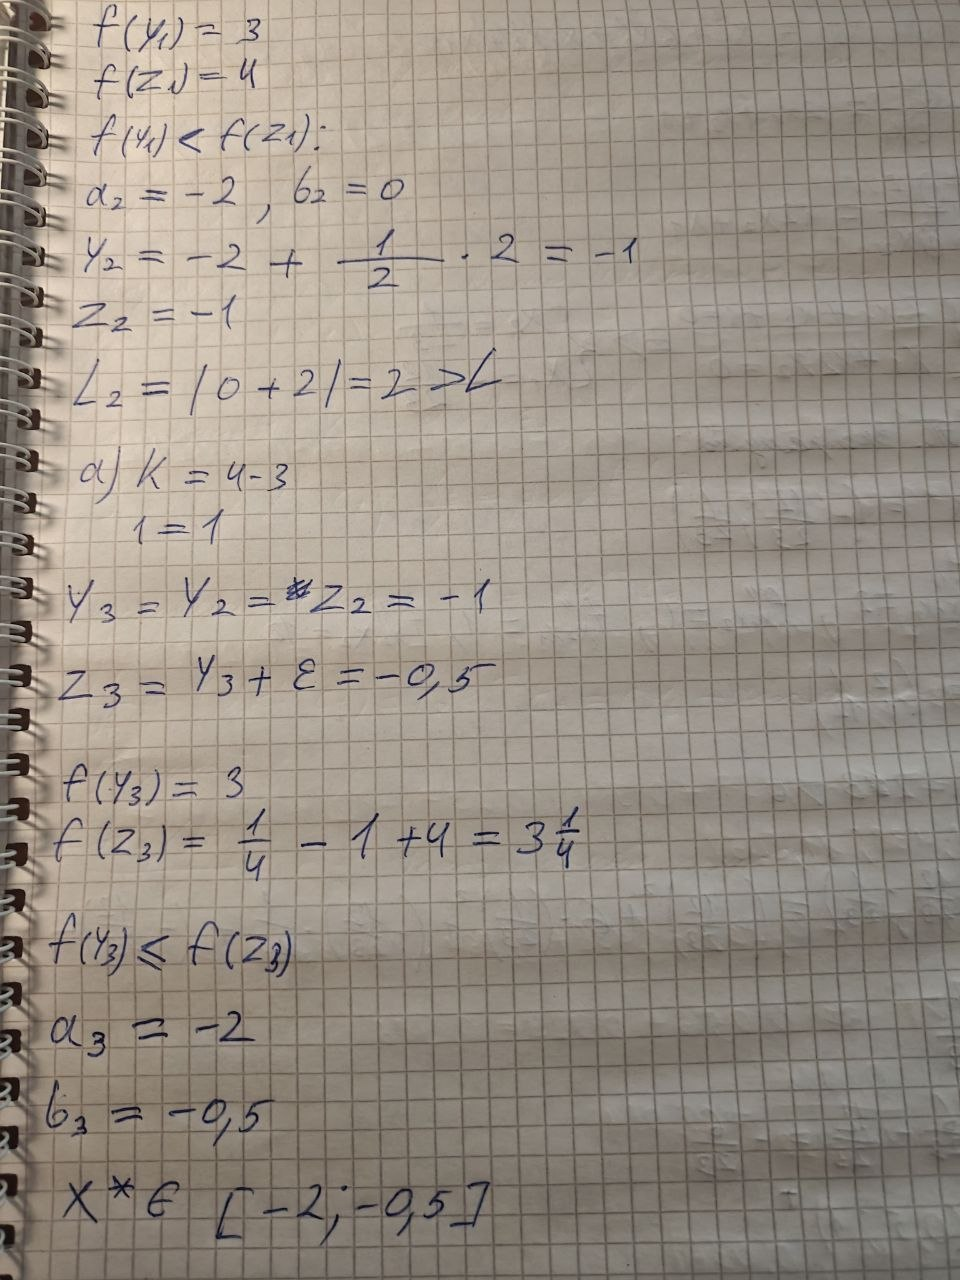 f(y₁) = 3
f(z₁) = 4
f(y₁) < f(z₁):
a₂ = -2 , b₂ = 0
y₂ = -2 + 1/2 · 2 = -1
z₂ = -1
L₂ = |0 + 2| = 2 > L
a) K = 4-3
1 = 1
y₃ = y₂ = z₂ = -1
z₃ = y₃ + ε = -0,5
f(y₃) = 3
f(z₃) = 1/4 - 1 + 4 = 3 1/4
f(y₃) ≤ f(z₃)
a₃ = -2
b₃ = -0,5
x* ∈ [-2; -0,5]